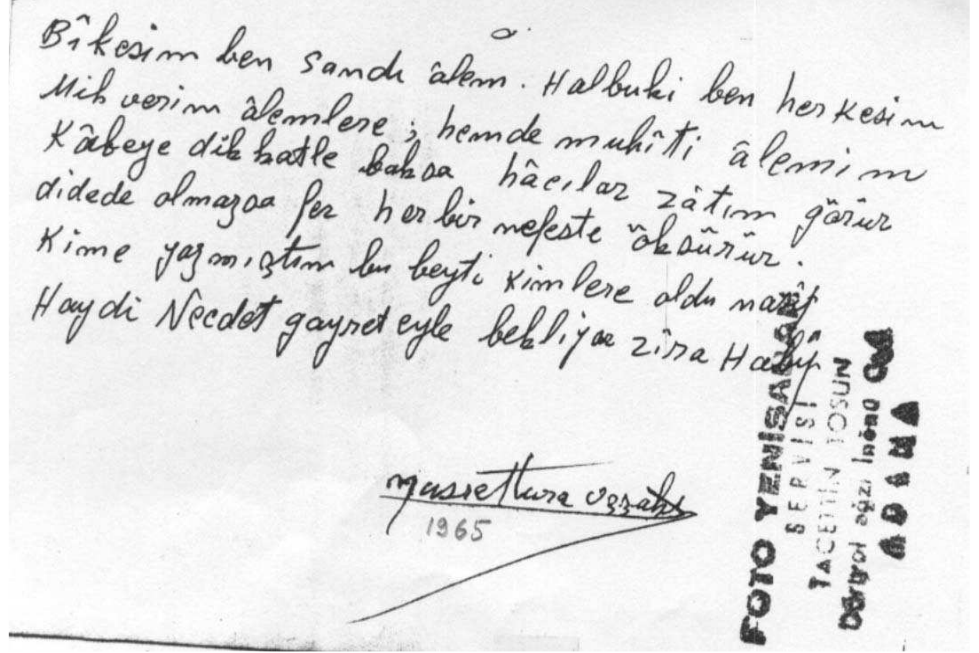 Bîkesim ben sandı âlem. Halbuki ben herkesim
Mih verim âlemlere; hemde muhîti âlemim
Kâbeye dikkatle baksa hâcılar zâtım görür
didede olmazsa fer her bir nefeste öksürür.
Kime yazmıştım bu beyti kimlere oldu nasîp
Haydi Necdet gayret eyle bekliyor zîra Habîp
1965
FOTO YENİSARAR
SERVİSİ
TACETTİN TOSUN
Dörtyol ağzı İnönü Cad
ADANA